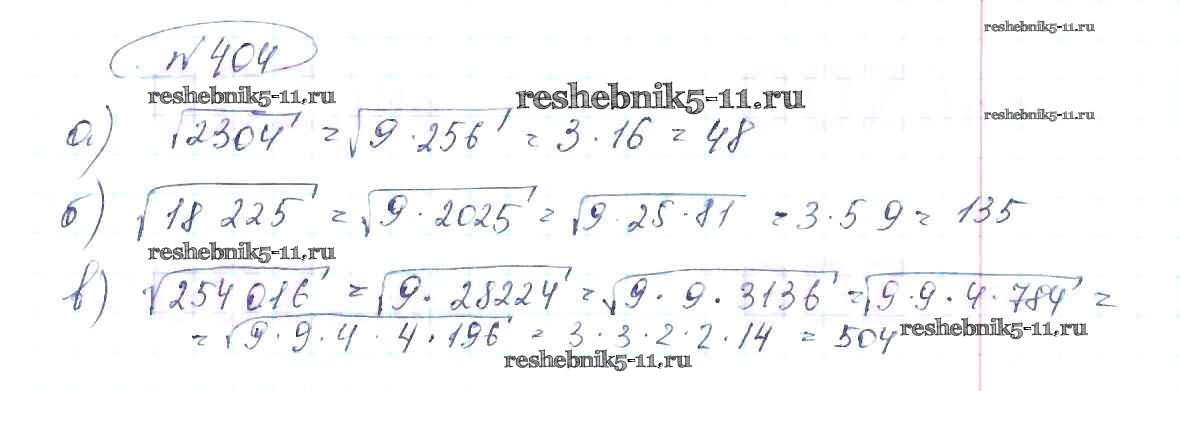 reshebnik5-11.ru
№ 404
reshebnik5-11.ru
reshebnik5-11.ru
reshebnik5-11.ru
а) √2304 = √9·256 = 3·16 = 48
б) √18 225 = √9·2025 = √9·25·81 = 3·5 9 = 135
reshebnik5-11.ru
в) √254 016 = √9·28224 = √9·9·3136 = √9·9·4·784 =
= √9·9·4·4·196 = 3·3·2·2·14 = 504
reshebnik5-11.ru
reshebnik5-11.ru